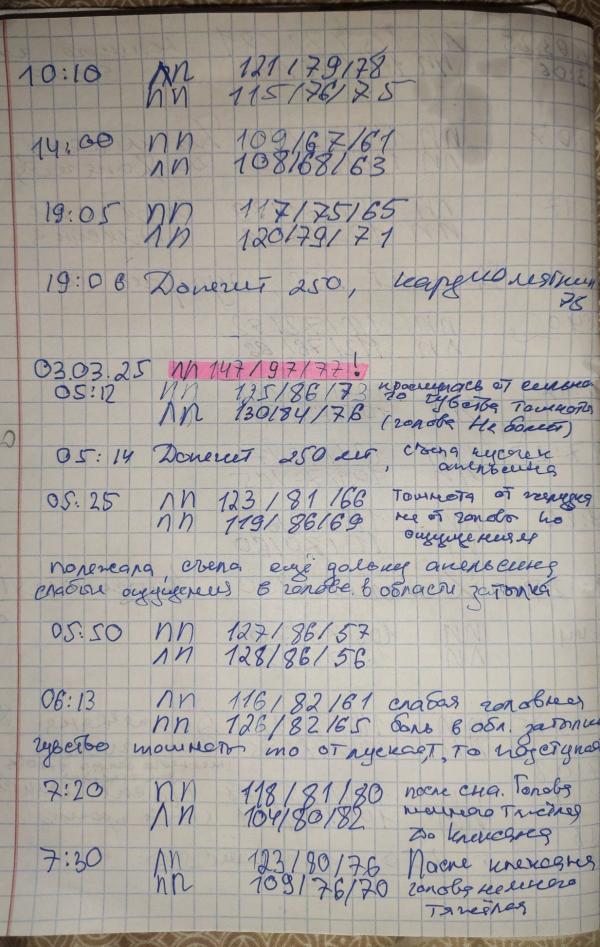 10:10 ЛП 121/79/78
ПП 115/76/75
14:00 ПП 109/67/61
ЛП 108/68/63
19:05 ПП 117/75/65
ЛП 120/79/71
19:06 Допегит 250, кардиомагнил
75
03.03.25 ЛП 147/97/77!
05:12 ПП 125/86/73 проснулась от сильно
го чувства тошноты
ЛП 130/84/76 (голова не болит)
05:14 Допегит 250 мг, съела кусочек
апельсина
05:25 ЛП 123/81/66 тошнота от
ПП 119/86/69 не от головы по
ощущениям
полежала, съела ещё дольку апельсина
слабые ощущения в голове в области затылка
05:50 ПП 127/86/57
ЛП 128/86/56
06:13 ЛП 116/82/61 слабая головная
ПП 126/82/65 боль в обл. затылка
чувство тошноты то отпускает, то подступает
7:20 ПП 118/81/80 после сна. Голова
ЛП 104/80/82 немного тяжёлая
до клексана
7:30 ЛП 123/80/76 После клексана
ПП 109/76/70 голова немного
тяжёлая